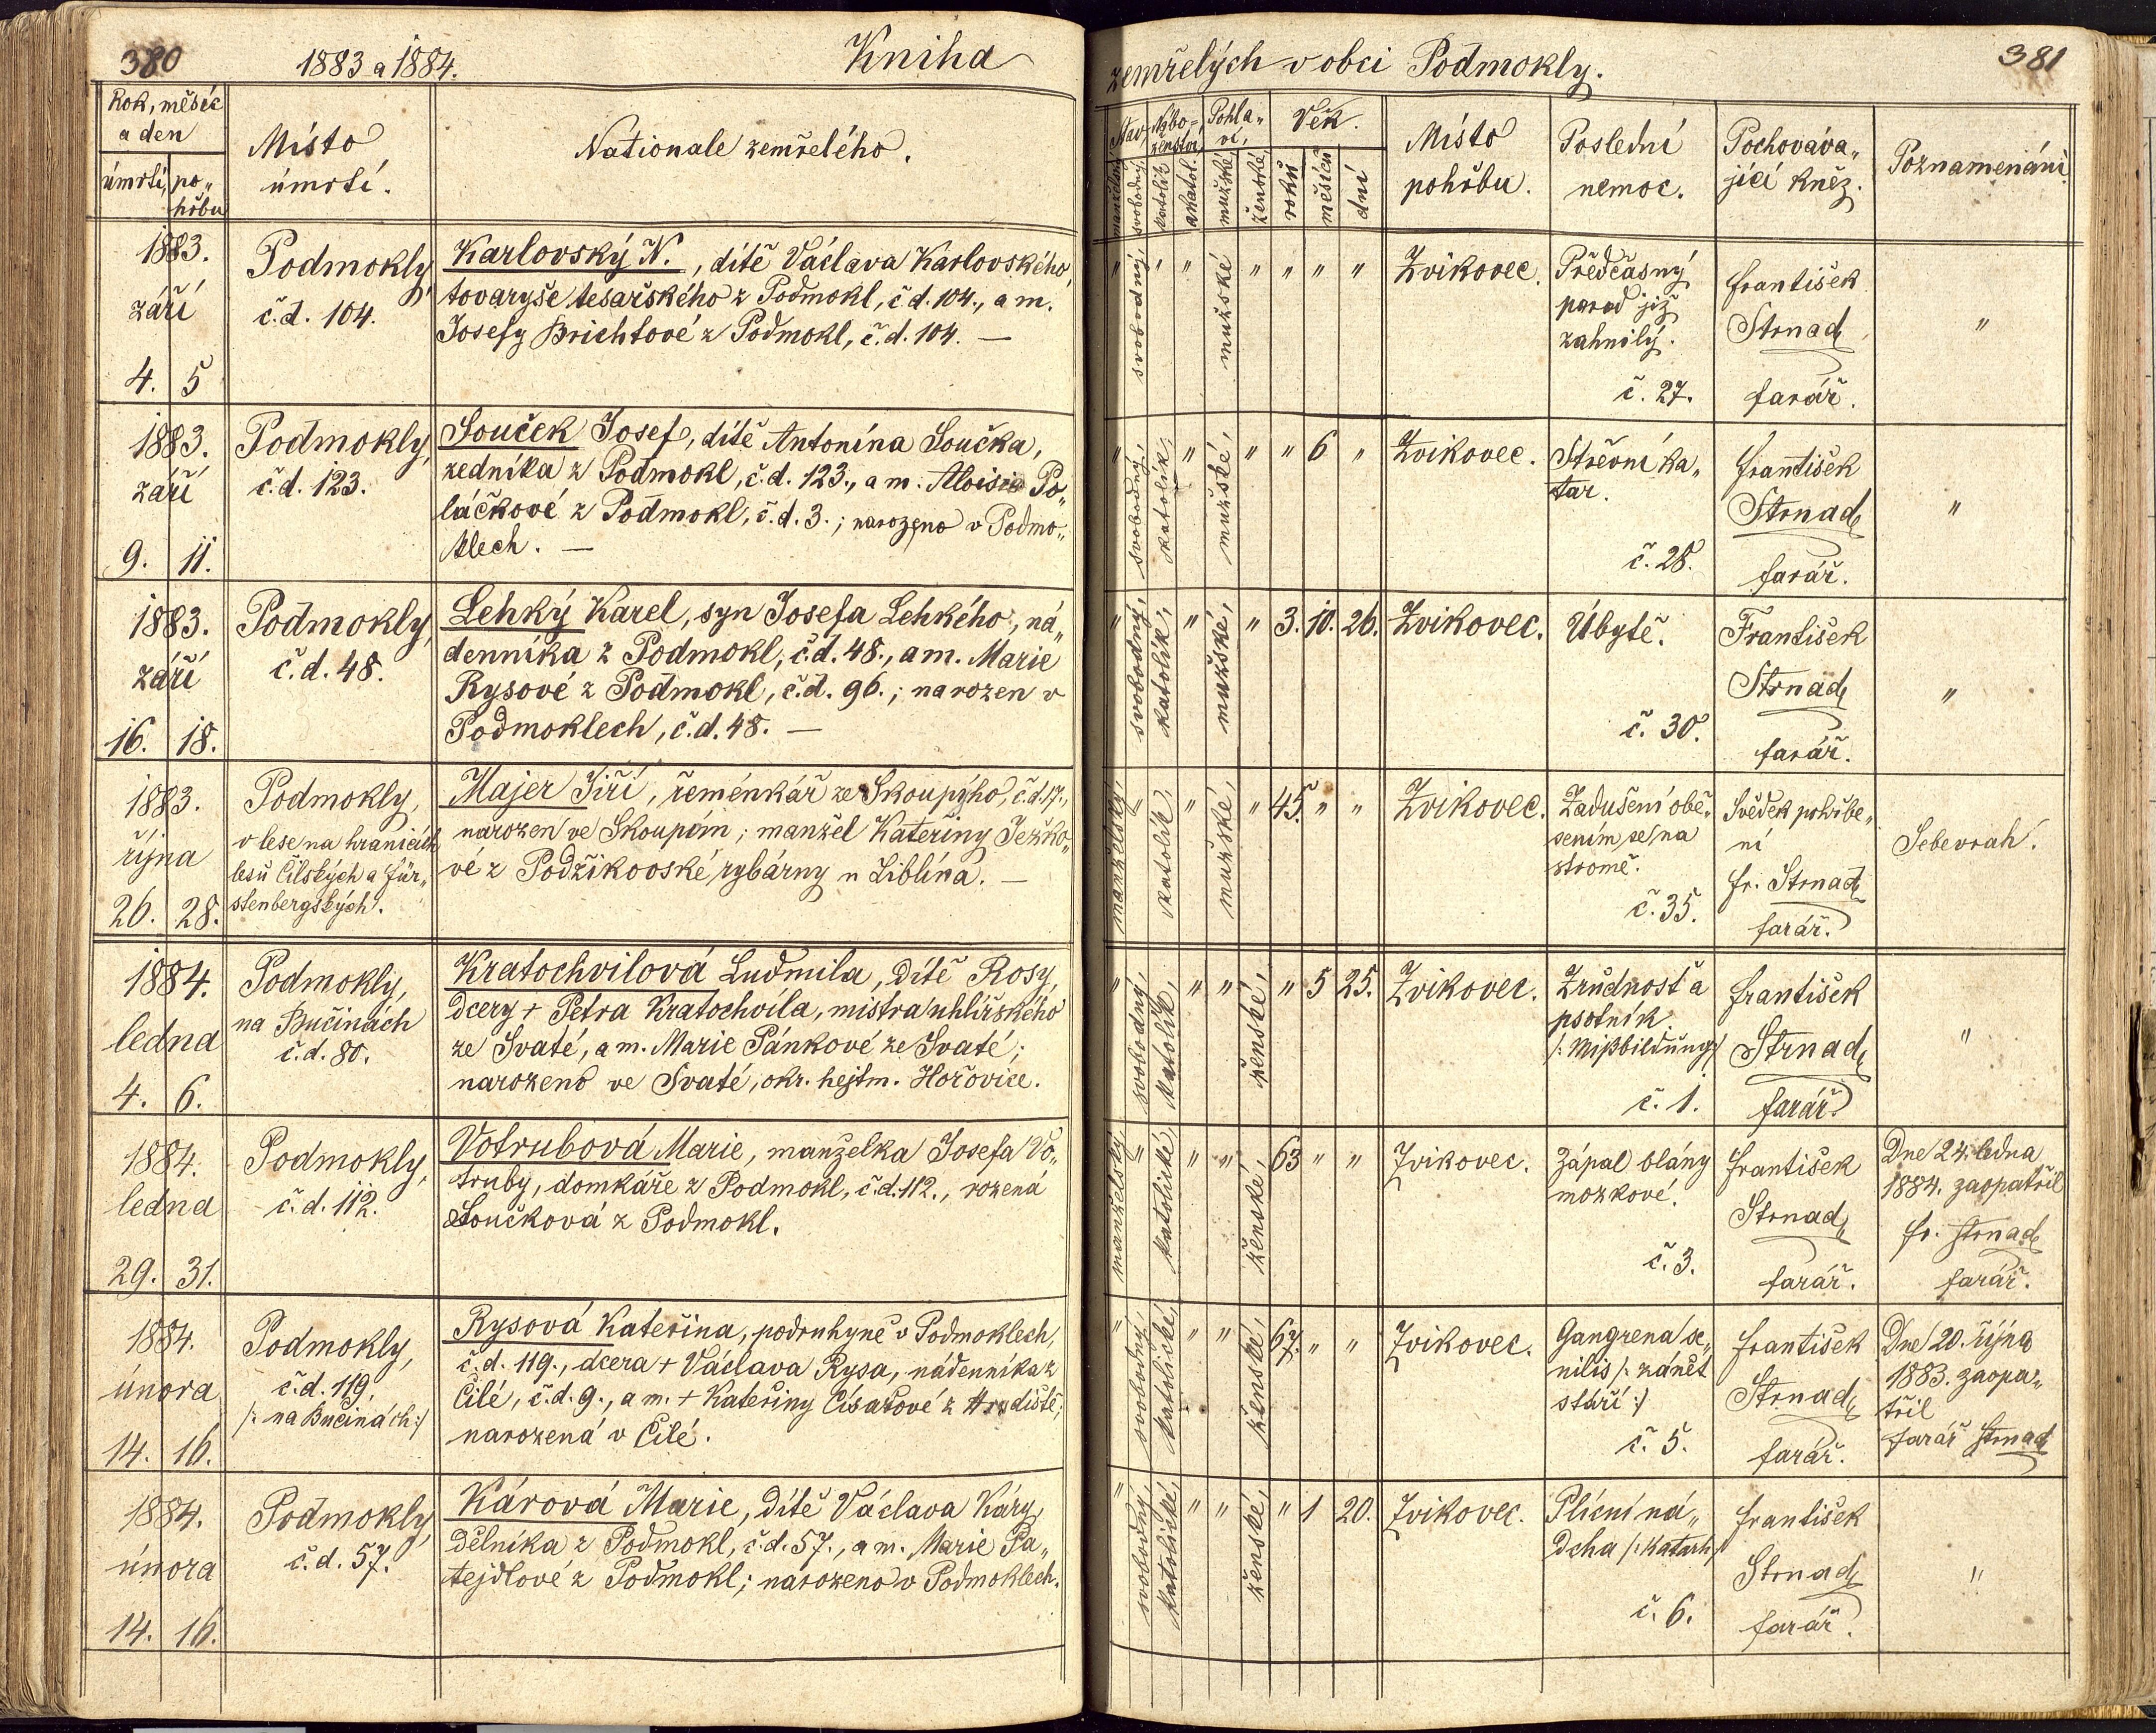 380
1883 a 1884.
Kniha
Rok, měsíc
a den
úmrtí, po„
hřbu
Místo
úmrtí.
Nationale zemřelého.
1883.
září
4. 5
Podmokly,
č.d. 104.
Karlovský N., dítě Václava Karlovského
tovaryše tesařského z Podmokl, č.d. 104., a m.
Josefy Brichtové z Podmokl, č.d. 104. —
1883.
září
9. 11.
Podmokly,
č.d. 123.
Souček Josef, dítě Antonína Součka,
zedníka z Podmokl, č.d. 123., a m. Aloisie Po„
láčkové z Podmokl, č.d. 3.; narozeno v Podmo„
klech. —
1883.
září
16. 18.
Podmokly,
č.d. 48.
Lehký Karel, syn Josefa Lehkého, ná„
denníka z Podmokl, č.d. 48., a m. Marie
Rysové z Podmokl, č.d. 96.; narozen v
Podmoklech, č.d. 48. —
1883.
října
26. 28.
Podmokly,
v lese na hranicích
lesů Čilských a Für„
stenbergských.
Majer Jiří, řeménkář ze Skoupýho, č.d. 17.,
narozen ve Skoupém; manžel Kateřiny Ježko„
vé z Podžikovské rybárny u Liblína. —
1884.
ledna
4. 6.
Podmokly,
na Bučinách
č.d. 80.
Kratochvilová Ludmila, dítě Rosy,
dcery + Petra Kratochvíla, mistra uhlířského
ze Svaté, a m. Marie Pánkové ze Svaté;
narozeno ve Svaté, okr. hejtm. Hořovice.
1884.
ledna
29. 31.
Podmokly,
č.d. 112.
Votrubová Marie, manželka Josefa Vo„
truby, domkáře z Podmokl, č.d. 112., rozená
Součková z Podmokl.
1884.
února
14. 16.
Podmokly,
č.d. 119.
/: na Bučinách :/
Rysová Kateřina, podruhyně v Podmoklech,
č.d. 119., dcera + Václava Rysa, nádenníka z
Čilé, č.d. 9., a m. + Kateřiny Císařové z Hradiště;
narozená v Čilé.
1884.
února
14. 16.
Podmokly,
č.d. 57.
Kárová Marie, dítě Václava Káry,
dělníka z Podmokl, č.d. 57., a m. Marie Pa„
tejdlové z Podmokl; narozeno v Podmoklech.
zemřelých v obci Podmokly.
381
Stav, Nábo-
ženství, Pohla„
ví, Věk.
manželský svobodný katolík akatol. mužské ženské roků měsíců dní
Místo
pohřbu.
Poslední
nemoc.
Pochováva„
jící kněz.
Poznamenání
" svobodný, " " mužské " " " "
Zvikovec.
Předčasný
porod již
zahnilý.
č. 27.
František
Strnad,
farář.
"
" svobodný, katolík, " mužské, " " 6 "
Zvikovec.
Střevní ka„
tar.
č. 28.
František
Strnad,
farář.
"
" svobodný, katolík, " mužské, " 3. 10. 26.
Zvikovec.
Úbytě.
č. 30.
František
Strnad,
farář.
"
manželský, = katolík, " mužské, " 45. " "
Zvikovec.
Zadušení obě„
šením se na
stromě.
č. 35.
Svědek pohřbe„
ní
Fr. Strnad,
farář.
Sebevrah.
" svobodný, katolík, " " ženské, " 5 25.
Zvikovec.
Zrůdnost a
psotník
/: Mißbildung :/
č. 1.
František
Strnad,
farář.
"
manželský = katolické, " " ženské, 63 " "
Zvikovec.
Zápal blány
mozkové.
č. 3.
František
Strnad,
farář.
Dne 24. ledna
1884. zaopatřil
Fr. Strnad,
farář.
" svobodný, katolické, " " ženské, 67. " "
Zvikovec.
Gangrena se„
nilis /: zánět
stáří :/
č. 5.
František
Strnad,
farář.
Dne 20. října
1883. zaopa„
třil
farář Strnad
" svobodný, katolické, " " ženské, " 1 20.
Zvikovec.
Plícní ná„
dcha /: Katarh :/
č. 6.
František
Strnad,
farář.
"